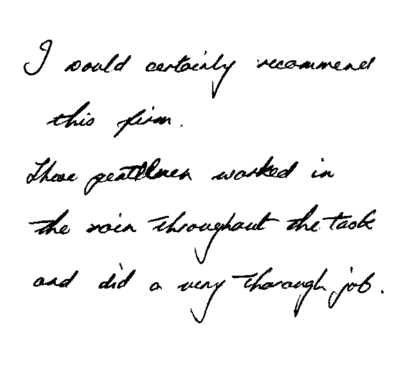 I would certainly recommend
this firm.
These gentlemen worked in
the rain throughout the task
and did a very thorough job.